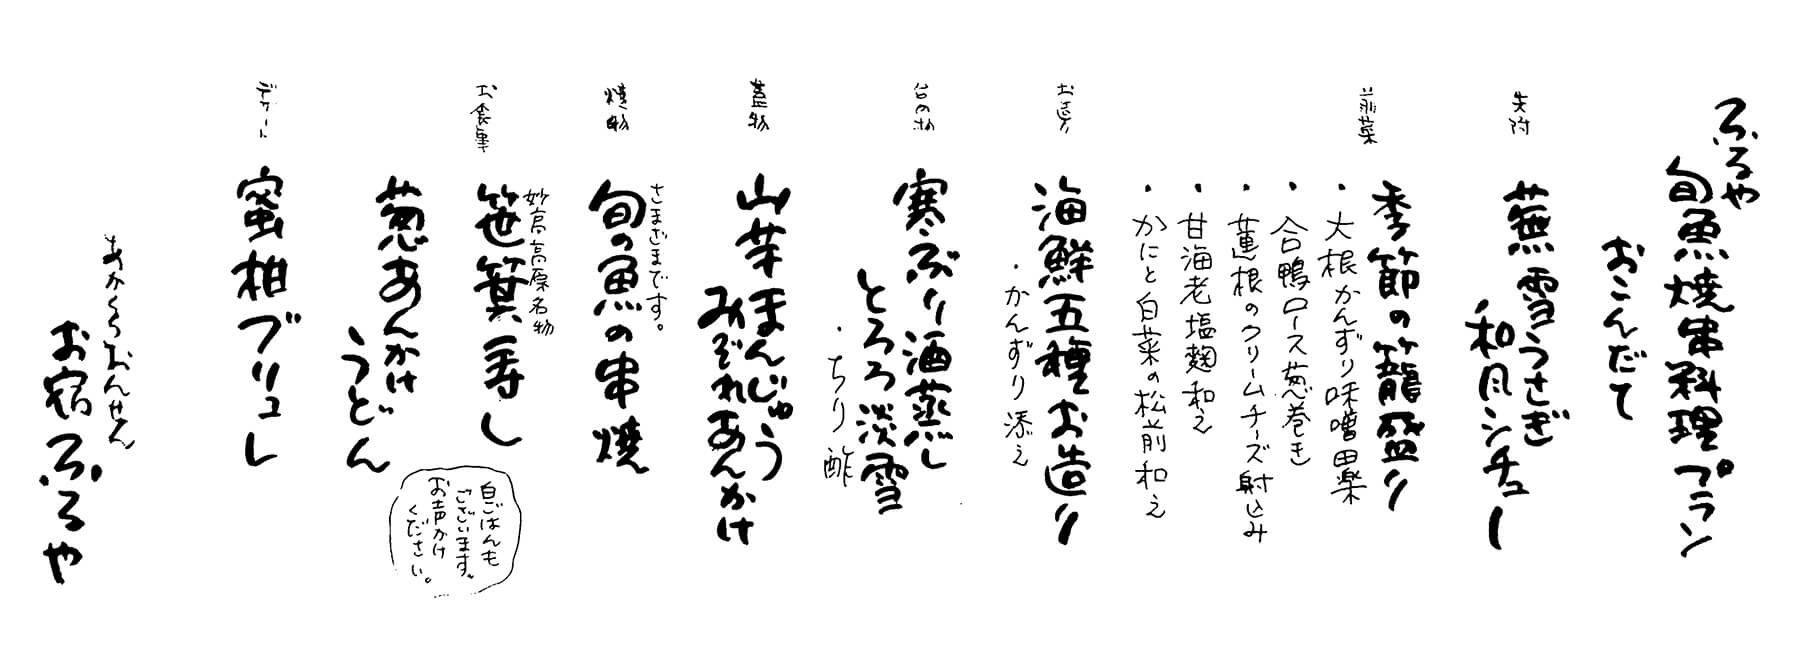 ふるや
旬魚焼串料理プラン
おこんだて
先附
蕪雪うさぎ
和風シチュー
前菜
季節の籠盛り
・大根かんずり味噌田楽
・合鴨ロース葱巻き
・蓮根のクリームチーズ射込み
・甘海老塩麹和え
・かにと白菜の松前和え
お造り
海鮮五種お造り
・かんずり添え
台の物
寒ぶり酒蒸し
とろろ淡雪
・ちり酢
蓋物
山芋まんじゅう
みぞれあんかけ
焼き物
さまざまです。
旬の魚の串焼
お食事
妙高高原名物
笹箕寿し
葱あんかけ
うどん
白ごはんも
ございます。
お声がけ
ください。
デザート
蜜柑ブリュレ
あかくらおんせん
お宿ふるや